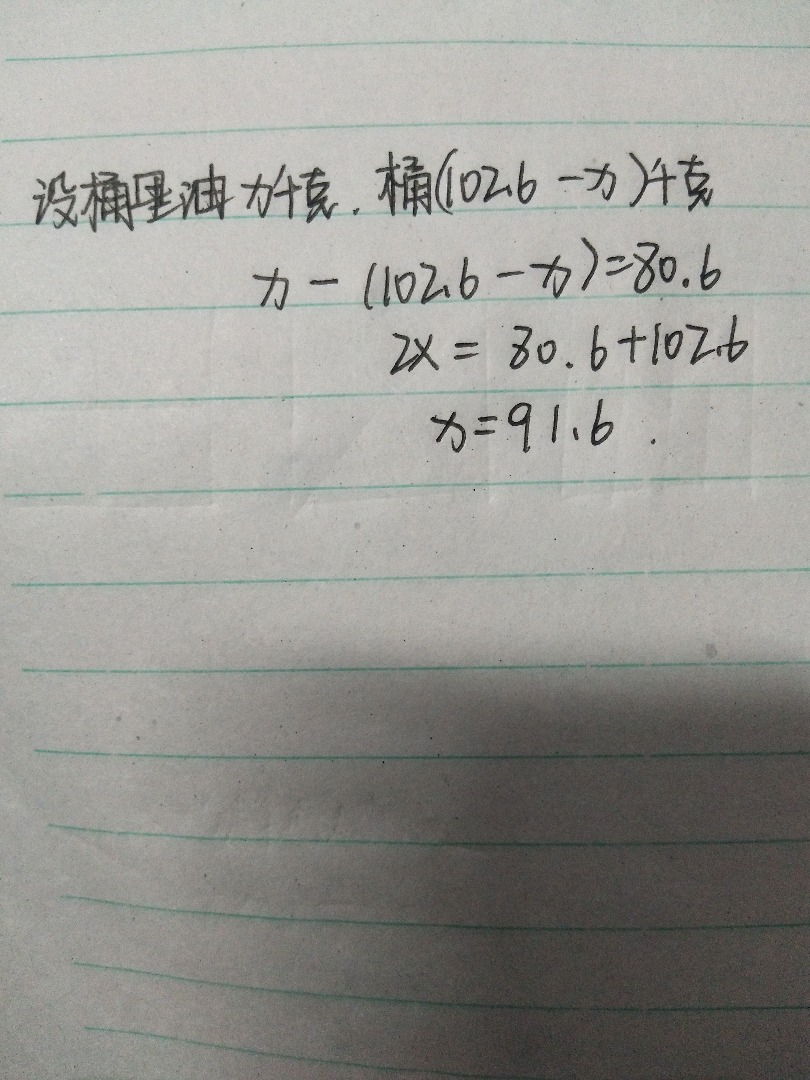 设桶里油x千克.桶(102.6-x)千克
x-(102.6-x)=80.6
2x=80.6+102.6
x=91.6.